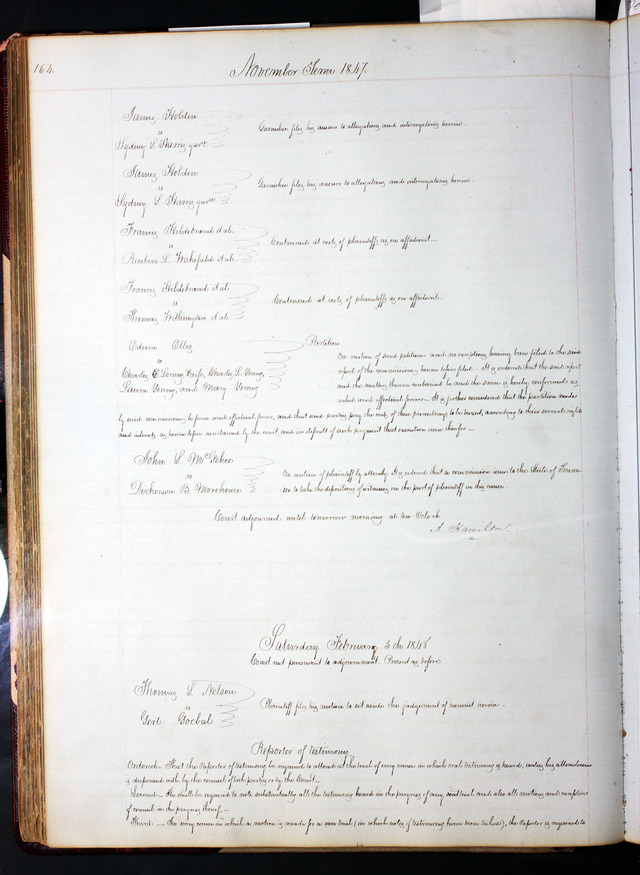 164.
November Term 1847.
James Holden
vs
Sydney S. Harris gart
Garnishee files his answer to allegations and interrogatories herein.
James Holden
vs
Sydney S. Harris gart
Garnishee files his answer to allegations and interrogatories herein.
Francis Hildebrand et al.
vs
Reuben L. Wakefield et al.
Continued at costs of plaintiffs as on affidavit.
Francis Hildebrand et al
vs
Thomas et al
Continued at costs of plaintiffs as on affidavit.
Edwin Ellis
vs
Charles E Loring, Wife, Charles L. Young,
Laura Young, and Mary Young
Partition
On motion of said petitioner and no exceptions having been filed to the said
report of the commissioners herein before filed. It is ordered that the said report
and the matters therein contained be and the same is hereby confirmed as
valid and effectual forever. It is further considered that the partition made
by said commissioners be firm and effectual forever, and that said parties pay the costs of these proceedings to be taxed, according to their several rights
and interests as herein before ascertained by the court, and in default of such payment that execution issue therefor.
John S. McGehee
vs
Dickerson B. Morehouse
On motion of plaintiff by attorney It is ordered that a commission issue to the State of Tennes-
see to take the depositions of witnesses on the part of plaintiff in this cause.
Court adjourned until tomorrow morning at ten Oclock
A. Hamilton
Saturday February 5th 1848
Court met pursuant to adjournment. Present as before
Thomas S. Nelson
vs
Gert Goebal
Plaintiff files his motion to set aside the judgement of nonsuit herein.
Reporter of testimony
Ordered. That the Reporter of testimony be required to attend at the trial of every cause in which oral testimony is heard, unless his attendance
is dispensed with by the counsel of both parties or by the Court.
Second. He shall be required to note substantially all the testimony heard in the progress of any such trial and also all motions and exceptions
of counsel in the progress thereof.
Third. In every cause in which a motion is made for a new trial (in which notes of testimony have been taken), the Reporter is required to